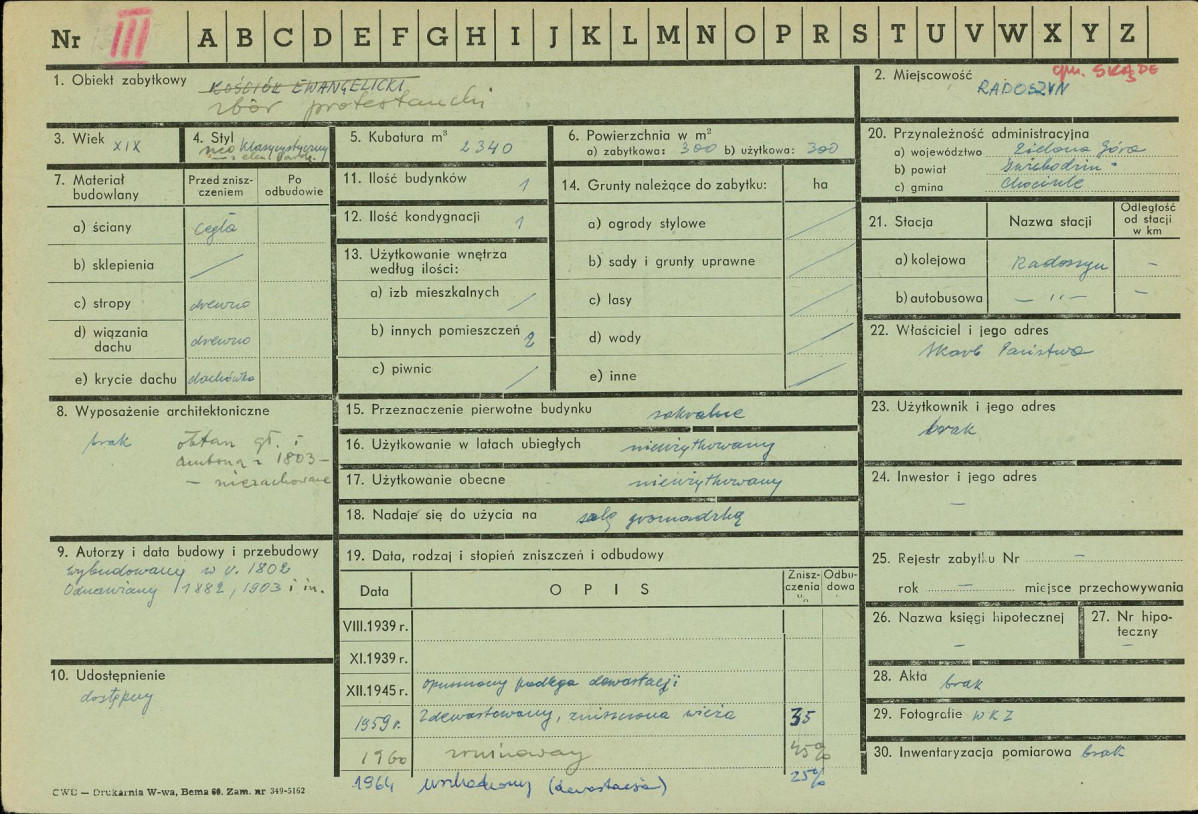 Nr III A B C D E F G H I J K L M N O P R S T U V W X Y Z
1. Obiekt zabytkowy KOŚCIÓŁ EWANGELICKI
zbór protestancki
2. Miejscowość gm. SKĄPE
RADOSZYN
3. Wiek XIX
4. Styl
neo klasycystyczny
5. Kubatura m³ 2340
6. Powierzchnia w m²
a) zabytkowa: 300 b) użytkowa: 300
7. Materiał budowlany
Przed zniszczeniem
Po odbudowie
a) ściany cegła
b) sklepienia
c) stropy drewno
d) wiązania dachu drewno
e) krycie dachu dachówka
8. Wyposażenie architektoniczne
brak ołtarz gł. i
ambona z 1803 –
– niezachowane
9. Autorzy i data budowy i przebudowy
wybudowany w r. 1802
Odnawiany 1882, 1903 i in.
10. Udostępnienie
dostępny
11. Ilość budynków 1
12. Ilość kondygnacji 1
13. Użytkowanie wnętrza
według ilości:
a) izb mieszkalnych
b) innych pomieszczeń 2
c) piwnic
14. Grunty należące do zabytku: ha
a) ogrody stylowe
b) sady i grunty uprawne
c) lasy
d) wody
e) inne
15. Przeznaczenie pierwotne budynku sakralne
16. Użytkowanie w latach ubiegłych nieużytkowany
17. Użytkowanie obecne nieużytkowany
18. Nadaje się do użycia na salę gromadzką
19. Data, rodzaj i stopień zniszczeń i odbudowy
Data OPIS Zniszczenia Odbudowa
VIII.1939 r.
XI.1939 r.
XII.1945 r. opuszczony podlega dewastacji
1959 r. Zdewastowany, zniszczona wieża 35
1960 zrujnowany 45%
1964 uszkodzony (dewastacja) 25%
20. Przynależność administracyjna
a) województwo Zielona Góra
b) powiat Świebodzin
c) gmina Chociule
21. Stacja Nazwa stacji Odległość
od stacji
w km
a) kolejowa Radoszyn –
b) autobusowa – " – –
22. Właściciel i jego adres
Skarb Państwa
23. Użytkownik i jego adres
brak
24. Inwestor i jego adres
–
25. Rejestr zabytku Nr –
rok – miejsce przechowywania
26. Nazwa księgi hipotecznej
–
27. Nr hipoteczny
–
28. Akta brak
29. Fotografie WKZ
30. Inwentaryzacja pomiarowa brak
CWD — Drukarnia W-wa, Bema 60. Zam. nr 349-5162